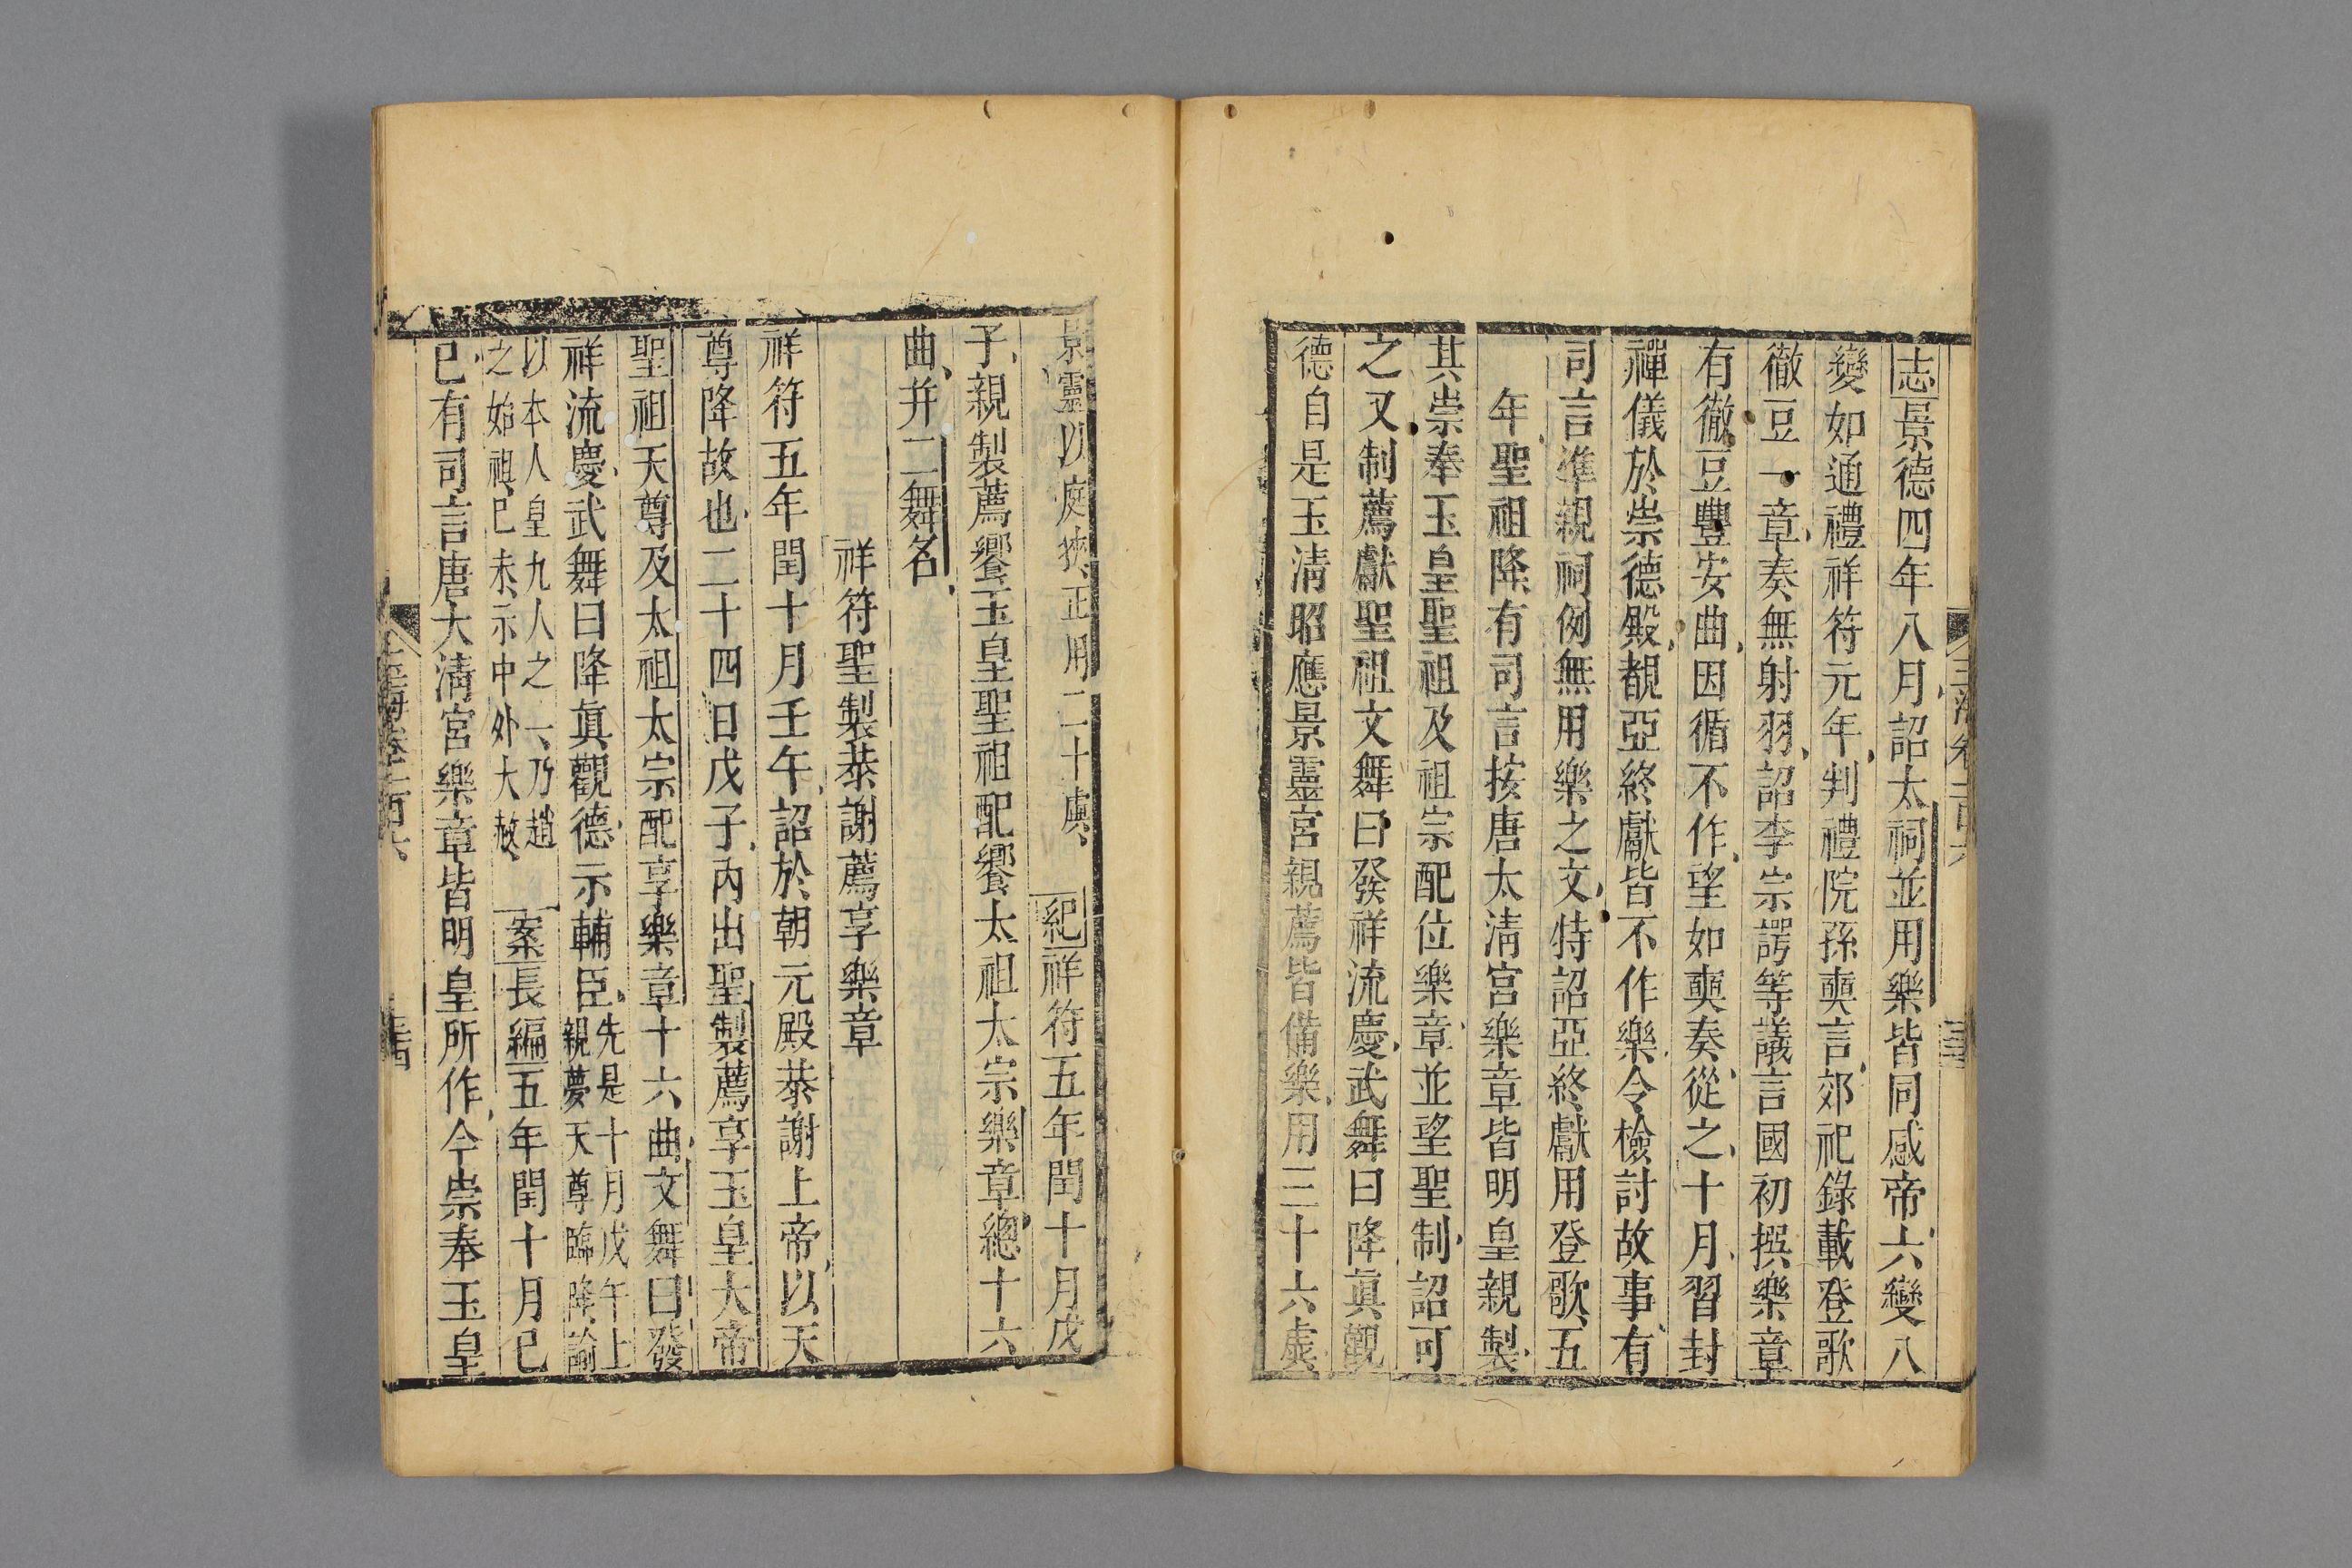 志景德四年八月詔太祠並用樂皆同感帝六變八
變如通禮祥符元年判禮院孫奭言郊祀錄載登歌
徹豆一章奏無射羽詔李宗諤等議言國初撰樂章
有徹豆豐安曲因循不作望如奭奏從之十月習封
禪儀於崇德殿覩亞終獻皆不作樂令檢討故事有
司言準親祠例無用樂之文特詔亞終獻用登歌五
年聖祖降有司言按唐太淸宮樂章皆明皇親製
其崇奉玉皇聖祖及祖宗配位樂章並望聖制詔可
之又制薦獻聖祖文舞曰發祥流慶武舞曰降眞觀
德自是玉淸昭應景靈宮親薦皆備樂用三十六虡
景靈以庭狹止用二十虡紀祥符五年閏十月戊
子親製薦饗玉皇聖祖配饗太祖太宗樂章總十六
曲并二舞名
祥符聖製恭謝薦享樂章
祥符五年閏十月壬午詔於朝元殿恭謝上帝以天
尊降故也二十四日戊子內出聖製薦享玉皇大帝
聖祖天尊及太祖太宗配享樂章十六曲文舞曰發
祥流慶武舞曰降眞觀德示輔臣先是十月戊午上
親夢天尊臨降諭
以本人皇九人之一乃趙
之始祖己未示中外大赦案長編五年閏十月己
巳有司言唐太淸宮樂章皆明皇所作今崇奉玉皇